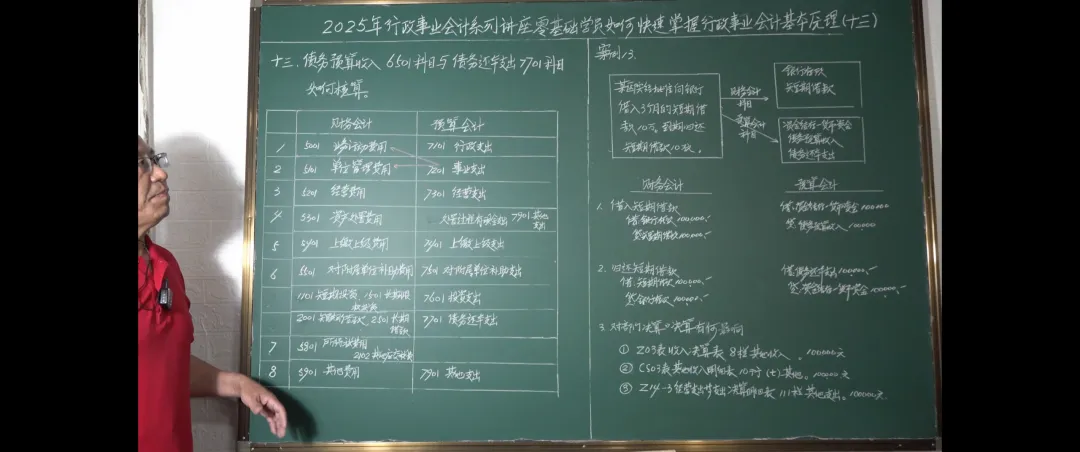 2025年行政事业会计系列讲座零基础学员如何快速掌握行政事业会计基本原理(十三)
十三、债务预算收入6501科目与债务还本支出7701科目
如何核算。
财务会计 预算会计
1 5001 业务活动费用 7101 行政支出
2 5101 单位管理费用 7201 事业支出
3 5201 经营费用 7301 经营支出
4 5301 资产处置费用 7901 其他支出
5 5401 上缴上级费用 7401 上缴上级支出
6 5501 对附属单位补助费用 7501 对附属单位补助支出
1101 短期投资、1501 长期股权投资 7601 投资支出
2001 短期借款、2501 长期借款 7701 债务还本支出
7 5801 所得税费用
8 5901 其他费用 7901 其他支出
案例13.
某医院经批准向银行
借入3个月的短期借
款10万。到期归还
短期借款10万。
财务会计
科目
预算会计
科目
银行存款
短期借款
资金结存—货币资金
债务预算收入
债务还本支出
财务会计 预算会计
1. 借入短期借款
借:银行存款100000.-
贷:短期借款100000.-
借:资金结存—货币资金100000
贷:债务预算收入100000
2. 归还短期借款
借:短期借款100000.-
贷:银行存款100000.-
借:债务还本支出100000.-
贷:资金结存—货币资金100000.-
3. 对部门决算"决算有何影响
① Z03表收入决算表 8栏其他收入。100000元
② CS03表其他收入明细表10行(七)其他。100000元
③ Z14-3经营支出 支出决算明细表111栏其他支出。100000元